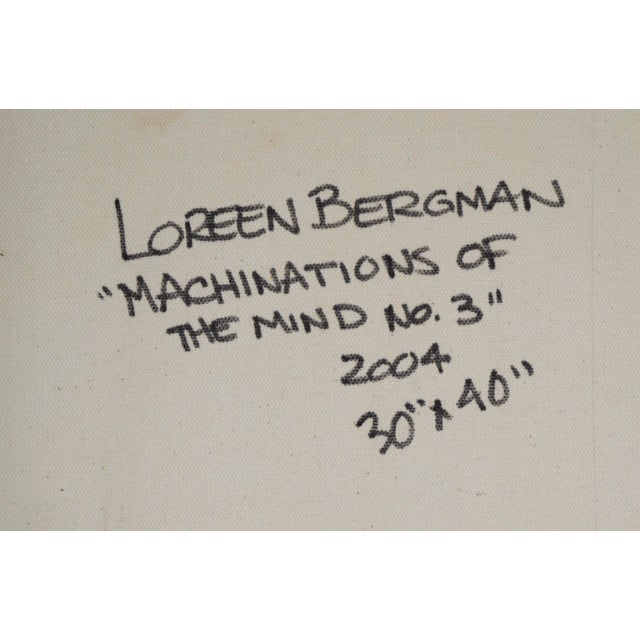 LOREEN BERGMAN
"MACHINATIONS OF
THE MIND No. 3"
2004
30" x 40"